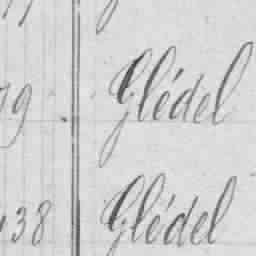 79 Glédel
438 Glédel